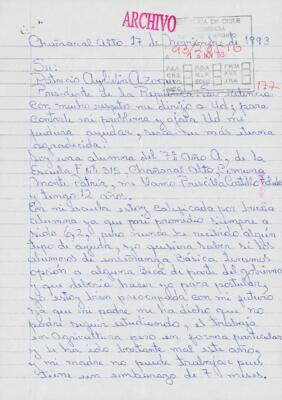 ARCHIVO
Chañaral Alto 17 de noviembre de 1993
Sr.
Patricio Aylwin Azocar
Presidente de la República
Con mucho respeto me dirijo a Ud; para
contarle mi problema y ojala Ud me
pudiera ayudar, sería su más eterna
agradecida.
Soy una alumna del 7º Año A, de la
Escuela F Nº 315, Chañaral Alto, Comuna
Monte Patria, me llamo Priscilla Castillo
tengo 12 años.
En mi escuela estoy calificada por buena
alumna ya que mi promedio siempre a
sido 6,2, pero nunca he recibido algún
tipo de ayuda, yo quisiera saber si los
alumnos de enseñanza Básica tenemos
opción a alguna Beca de parte del gobierno
y que debería hacer yo para postular,
yo estoy bien preocupada con mi futuro
ya que mi padre me ha dicho que no
podré seguir estudiando, el trabaja
en Agricultura pero en forma particular
y le ha ido bastante mal este año,
mi madre no puede trabajar pues
tiene un embarazo de 7 meses.